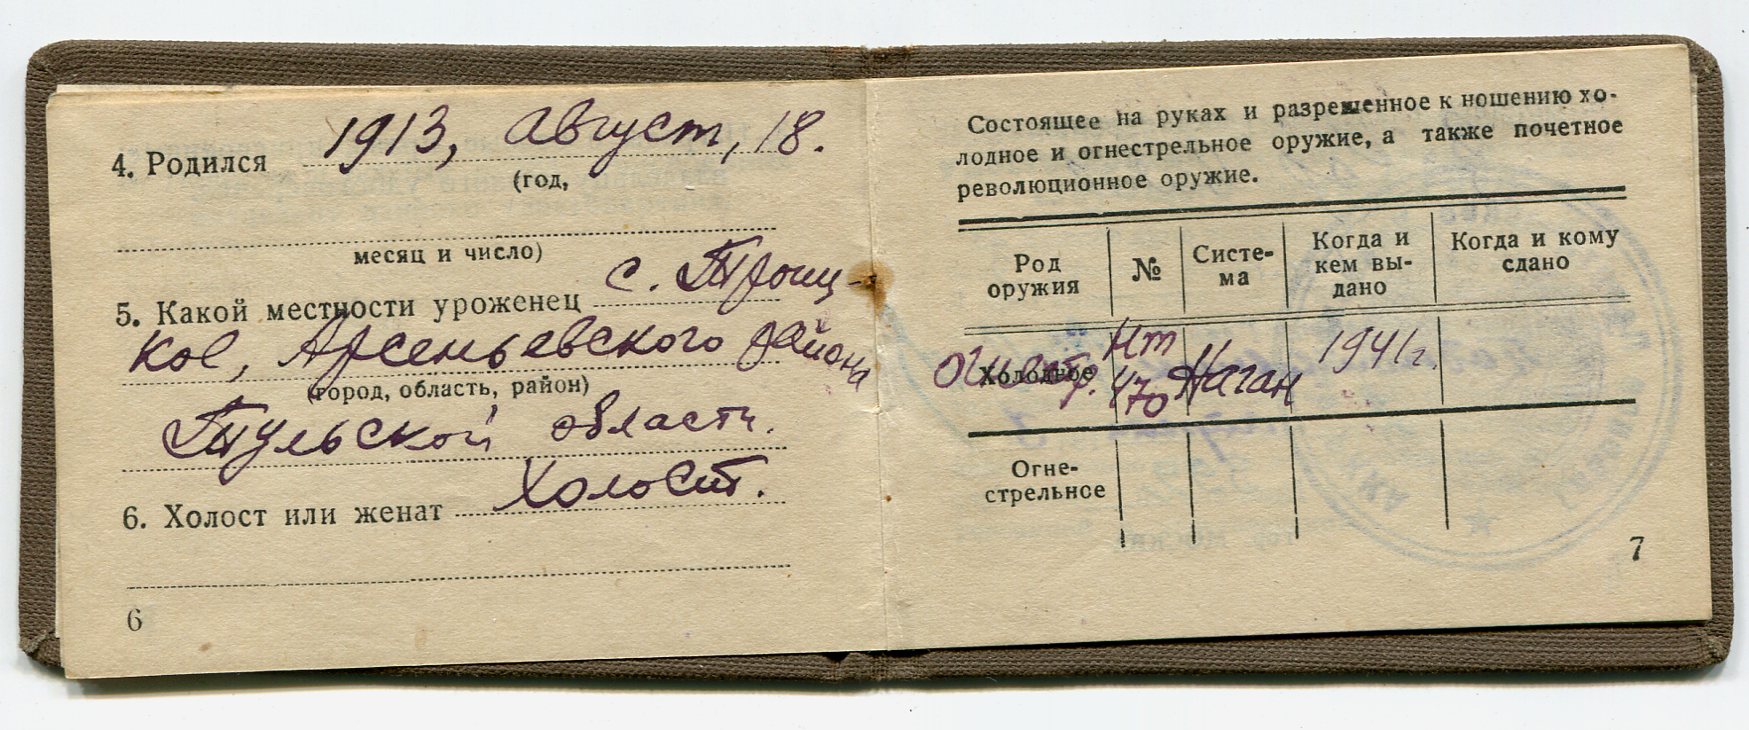 4. Родился 1913, август, 18.
(год,
месяц и число)
5. Какой местности уроженец с. Троиц-
кое, Арсеньевского района
(город, область, район)
Тульской области.
6. Холост или женат Холост.
6
Состоящее на руках и разрешенное к ношению хо-
лодное и огнестрельное оружие, а также почетное
революционное оружие.
Род оружия | № | Систе-ма | Когда и кем вы-дано | Когда и кому сдано
Холодное огнестр. | Нт 470 | Наган | 1941г.
Огне-
стрельное
7